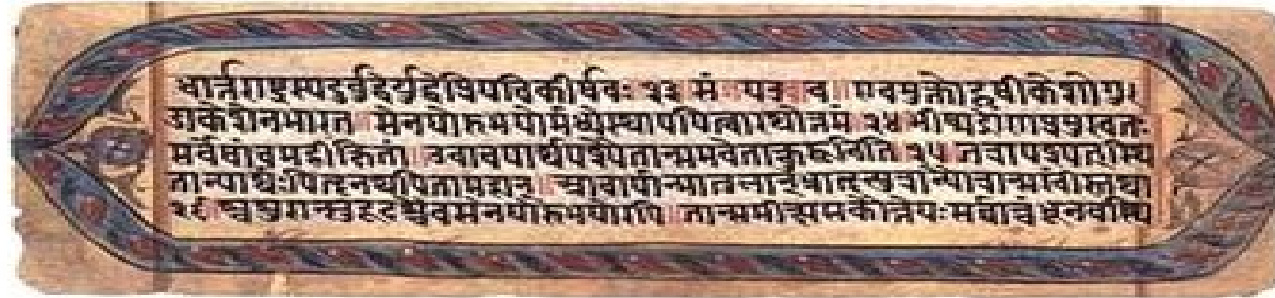 धार्तराष्ट्रस्यदुर्बुद्धेर्युद्धेप्रियचिकीर्षवः २३ संजयउवाच ॥ एवमुक्तोहृषीकेशोगु
डाकेशेनभारत ॥ सेनयोरुभयोर्मध्येस्थापयित्वारथोत्तमं २४ भीष्मद्रोणप्रमुखतः
सर्वेषांचमहीक्षितां ॥ उवाचपार्थपश्यैतान्समवेतान्कुरूनिति २५ तत्रापश्यत्स्थि
तान्पार्थःपितॄनथपितामहान् ॥ आचार्यान्मातुलान्भ्रातॄन्पुत्रान्पौत्रान्सखींस्तथा
२६ श्वशुरान्सुहृदश्चैवसेनयोरुभयोरपि ॥ तान्समीक्ष्यसकौंतेयःसर्वान्बंधूनवस्थि